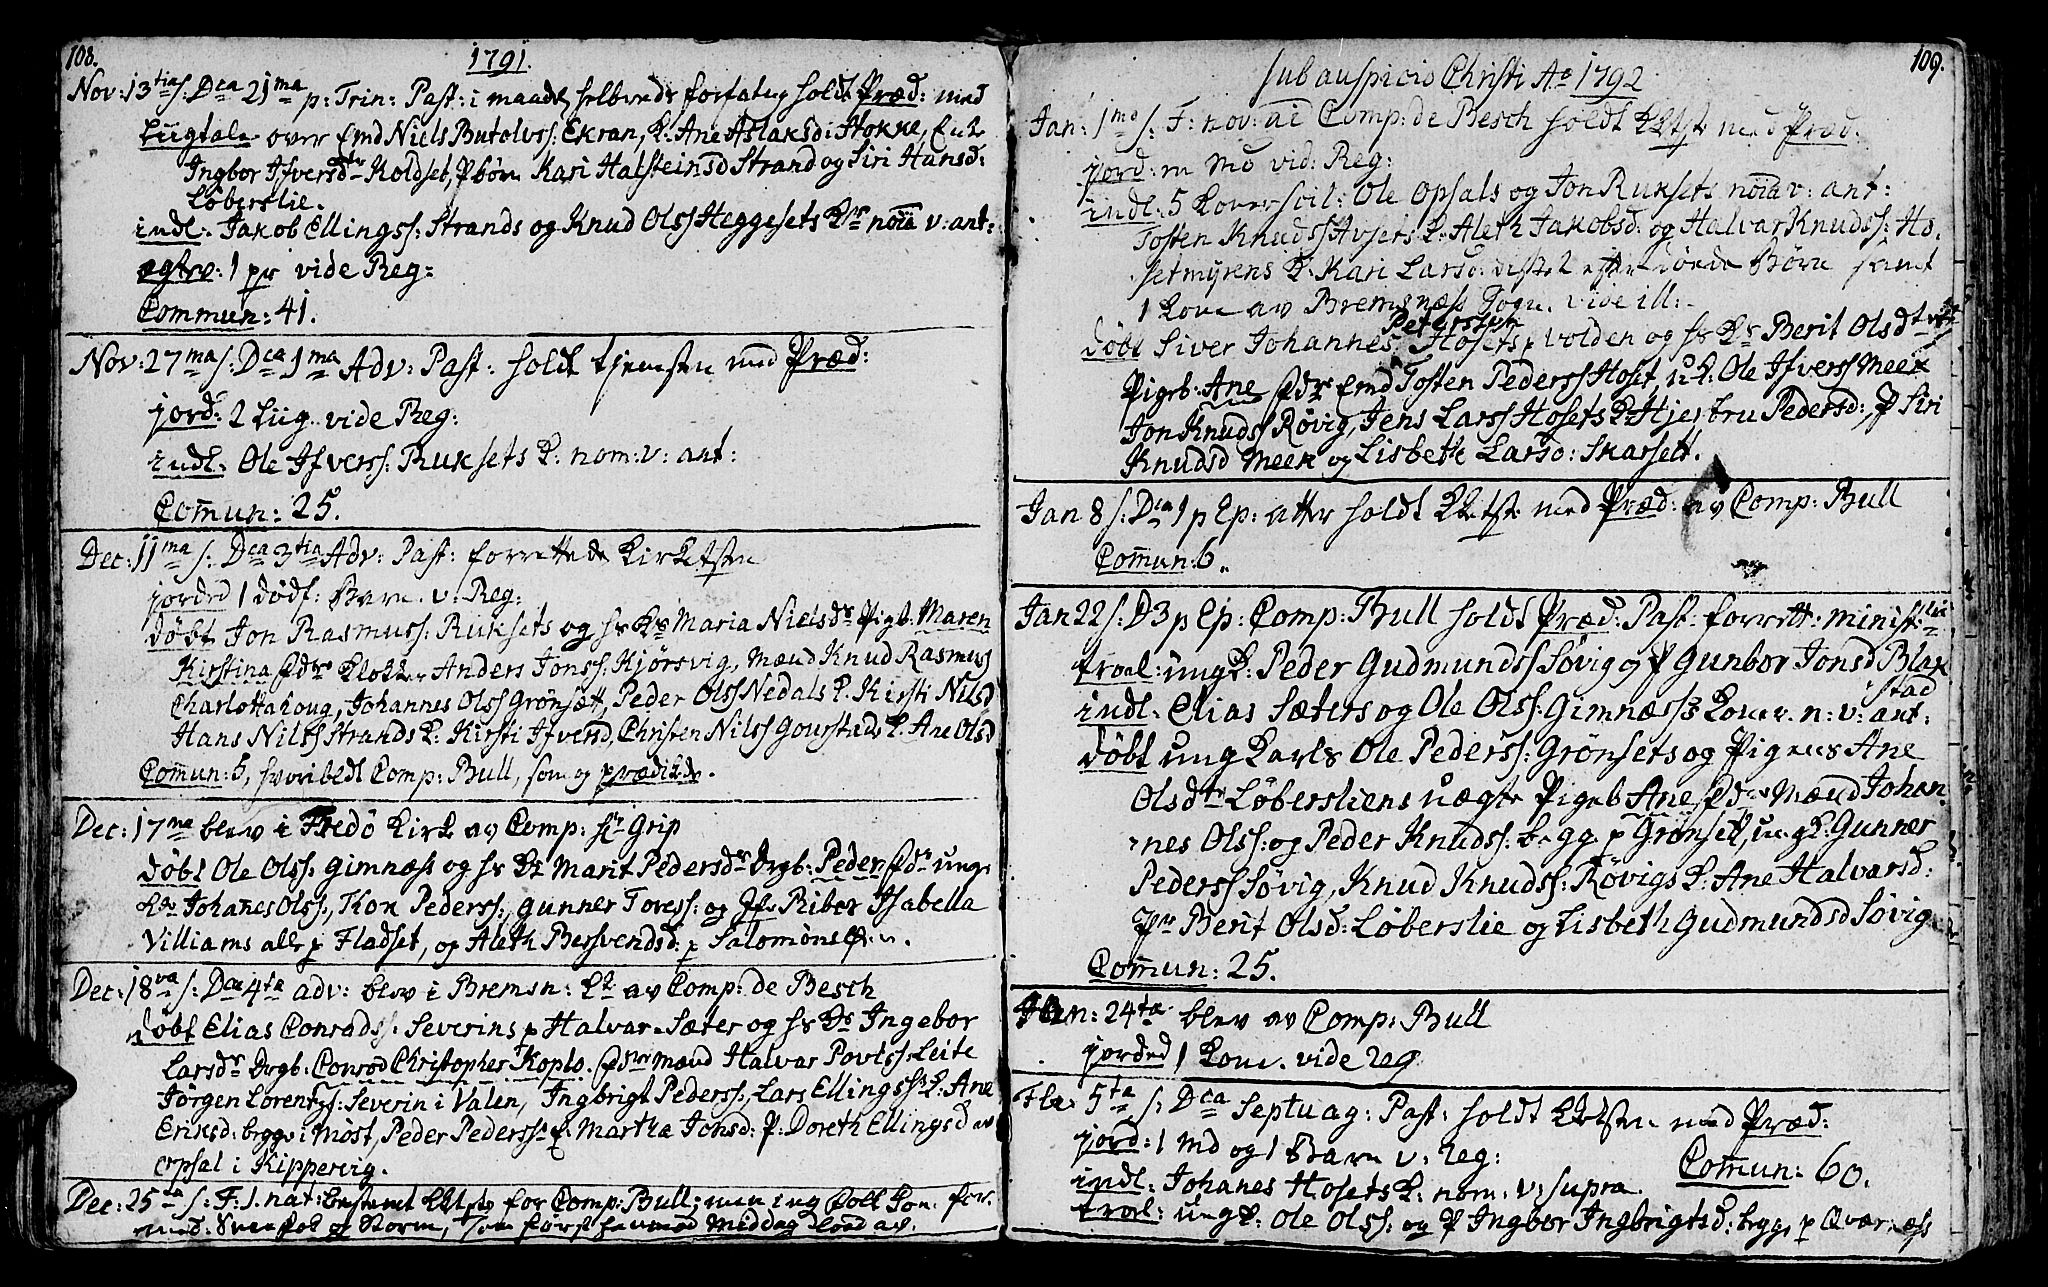 108.
1791.
Nov: 13tia s: Dca 21ma p: Trin: Past: i maadel: holdt Præd: med
Liigtale over Emd Niels Butolvss: Ekran, K: Ane Aslaksd: Stokke, Enke
Ingbor Ifversdtr Koldset, Pbørn Kari Halsteinsd Strand og Siri Hansd:
Løberslie.
indl: Jakob Ellingss: Strands og Knud Olss Heggesets Kr noia v: ant:
ægtev: 1 pr vide Reg:
Commun: 41.
Nov: 27ma s: Dca 1ma Adv: Past: holdt tjensten med Præd:
jord: 2 Liig vide Reg:
indl: Ole Ifverss: Ruksets K: nom: v: ant:
Comun: 25.
Dec: 11ma s: Dca 3tia Adv: Past: forrettede Kirketsten
jorded 1 dødf: Barn v: Reg:
døbt Jon Rasmuss: Ruksets og hs Ks Maria Nielsdr Pigb: Maren
Kirstina Fdre Klokker Anders Jonss: Kjørsvig, Mænd Knud Rasmuss
Charlottahoug, Johannes Olss Grønset, Peder Olss Nedals K: Kirsti Nilsd
Hans Nilss Strands K: Kirsti Ifversd, Christen Nilss Gourstads K: Ane Olsd
Comun: 5, hvoribl Comp: Bull, som og prædikede.
Dec: 17na blev i Fredø Kirke av Comp: hr Grip
døbt Ole Olss: Gimnæss og hs Ks Marit Pedersdr Drgb: Peder Fdr unge
Johanes Olss, Kon Pederss:, Gunner Tovess: og Jfr Riber Isabella
Villiams alle p Fladset, og Aleth Bersvendsd: p Salomons
Dec: 18va s: Dca 4ta adv: blev i Bremsn: Kk av Comp: de Besch
døbt Elias Conradss: Severins p Halvar Sæter og hs Ks Ingebor
Larsdr Drgb: Conrod Christopher Koplo. Fdre mænd Halvar Povelss: Leite
Jørgen Lorentss: Severin i Valen, Ingbrigt Pederss:, Lars Ellingss K: Ane
Eriksd: begge i Møst, Peder Pederss K: Martha Jonsd: P: Doreth Ellingsd av
Opsal i Kippervig.
Dec: 25ta s: F: 1. nat: bestemt for Comp: Bull; men ing folk kom for
Sne og Storm, som først henimod Middag lod av.
109.
Sub auspicio Christi Ao 1792
Jan: 1ma s: F: nov: ai Comp: de Besch holdt Kktste med Præd:
jord: en Md vid: Reg:
indl: 5 Koner scil: Ole Opsals og Jon Ruksets noia v: ant:
Tosten Knudss Avsets K: Aleth Jakobsd: og Halvar Knudss: Ho-
setmyrens K: Kari Larsd: disse efter døde Børn samt
1 Kone av Bremsnæss Sogn. vide ill:
døbt Siver Johannes Peterssen Hosets p Volden og hs Ks Berit Olsdtr
Pigeb: Ane Fdre Emd Tosten Pederss Hoset, uK: Ole Ifverss Meek
Jon Knudss Røvig, Jens Larss Hosets K: Hjertru Pedersd:, P Siri
Knudsd Meek og Lisbeth Larsd: Skarsett.
Jan 8 s: Dca 1 p Ep: atter holdt Kktste med Præd: av Comp: Bull
Comun: 6.
Jan 22 s: D 3 p Ep: Comp: Bull holdt Præd: Past: forrett: minist:
trol: ung K: Peder Gudmundss Søvig og P Gunbor Jonsd Blak
stad
indl: Elias Sæters og Ole Olss: Gimnæss Koner n: v: ant:
døbt ung Karls Ole Pederss: Grønsets og Pigens Ane
Olsdtr Løbersliens uægte Pigeb Ane, Fdre Mænd Johan
nes Olss: og Peder Knudss: begge p Grønset, ung K: Gunner
Pederss Søvig, Knud Knudss: Røvigs K: Ane Halvarsd:
Pr Berit Olsd: Løberslie og Lisbeth Gudmundsd Søvig
Comun: 25.
Jan: 24ta blev av Comp: Bull
jorded 1 Kone. vide reg
Feb: 5ta s: Dca Septuag: Past: holdt Kktsten med Præd:
jord: 1 Md og 1 Barn v: Reg:
Comun: 60.
indl: Johanes Hosets K: nom: v: supra
trol: ung K: Ole Olss: og P Ingbor Ingbrigtsd: begge p Qværnæss